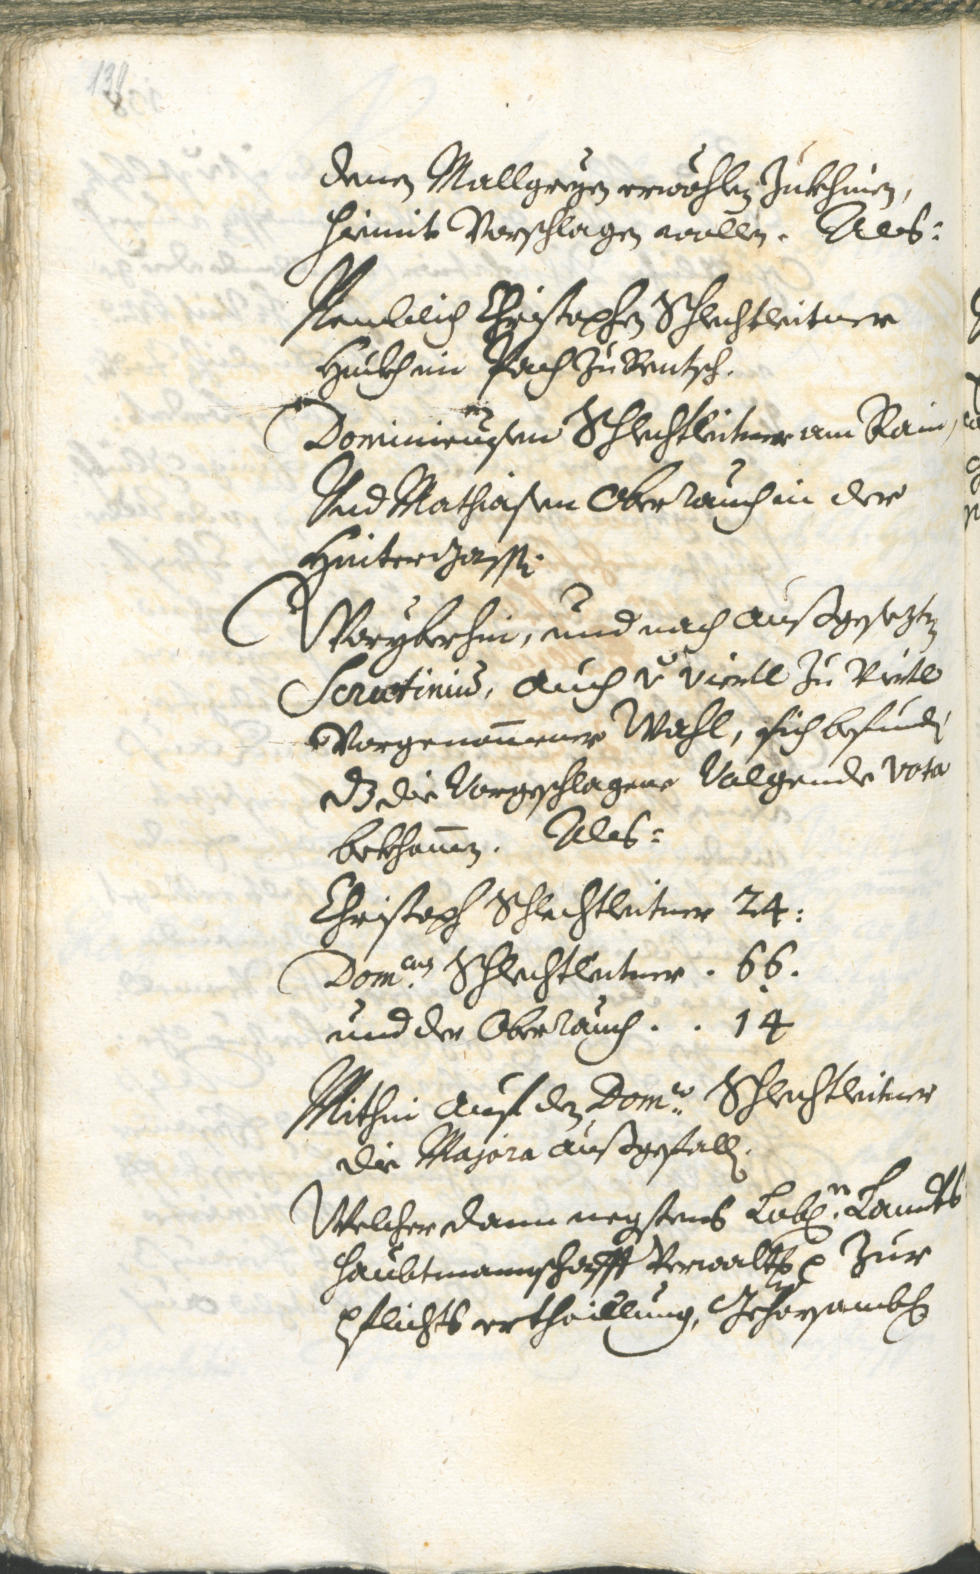 138
denen Mallgreyen erwöhlen zukhinen,
hiemit Vorschlagen wollen. Als:
Nemblich Christophen Schlechtleitner
Huebh im Pach zu Rentsch.
Dominicussen Schlechtleitner am Rain,
Und Mathiasen Oberrauch in der
Hintergassn:
Woryberhin, und nach außgesezten
Scrutinius, auch v viertl zu Viertl
Vorgenom̄ener Wahl, sich befundn
dz die Vorgeschlagene Volgende vota
bekhom̄en. Als:
Christoph Schlechtleitner 24:
Dom.cus Schlechtleitner . 66.
und der Oberrauch . . 14
Mithin auf den Dom.co Schlechtleitner
die Majora außgefalln.
Welcher dann negstens Lobl.n Landts
haubtmannschafft Verwaltg zur
pflichts erthaillung, Gehorsambl